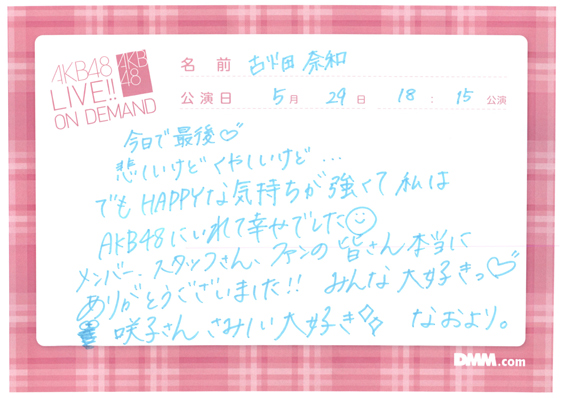 AKB48
LIVE!!
ON DEMAND
AKB
48
名 前 古畑奈和
公演日 5月 29日 18:15 公演
今日で最後♡
悲しいけどくやしいけど…
でもHAPPYな気持ちが強くて私は
AKB48にいれて幸せでした
メンバー、スタッフさん、ファンの皆さん本当に
ありがとうございました!! みんな大好きっ♡
咲子さん さみしい大好き なおより。
DMM.com